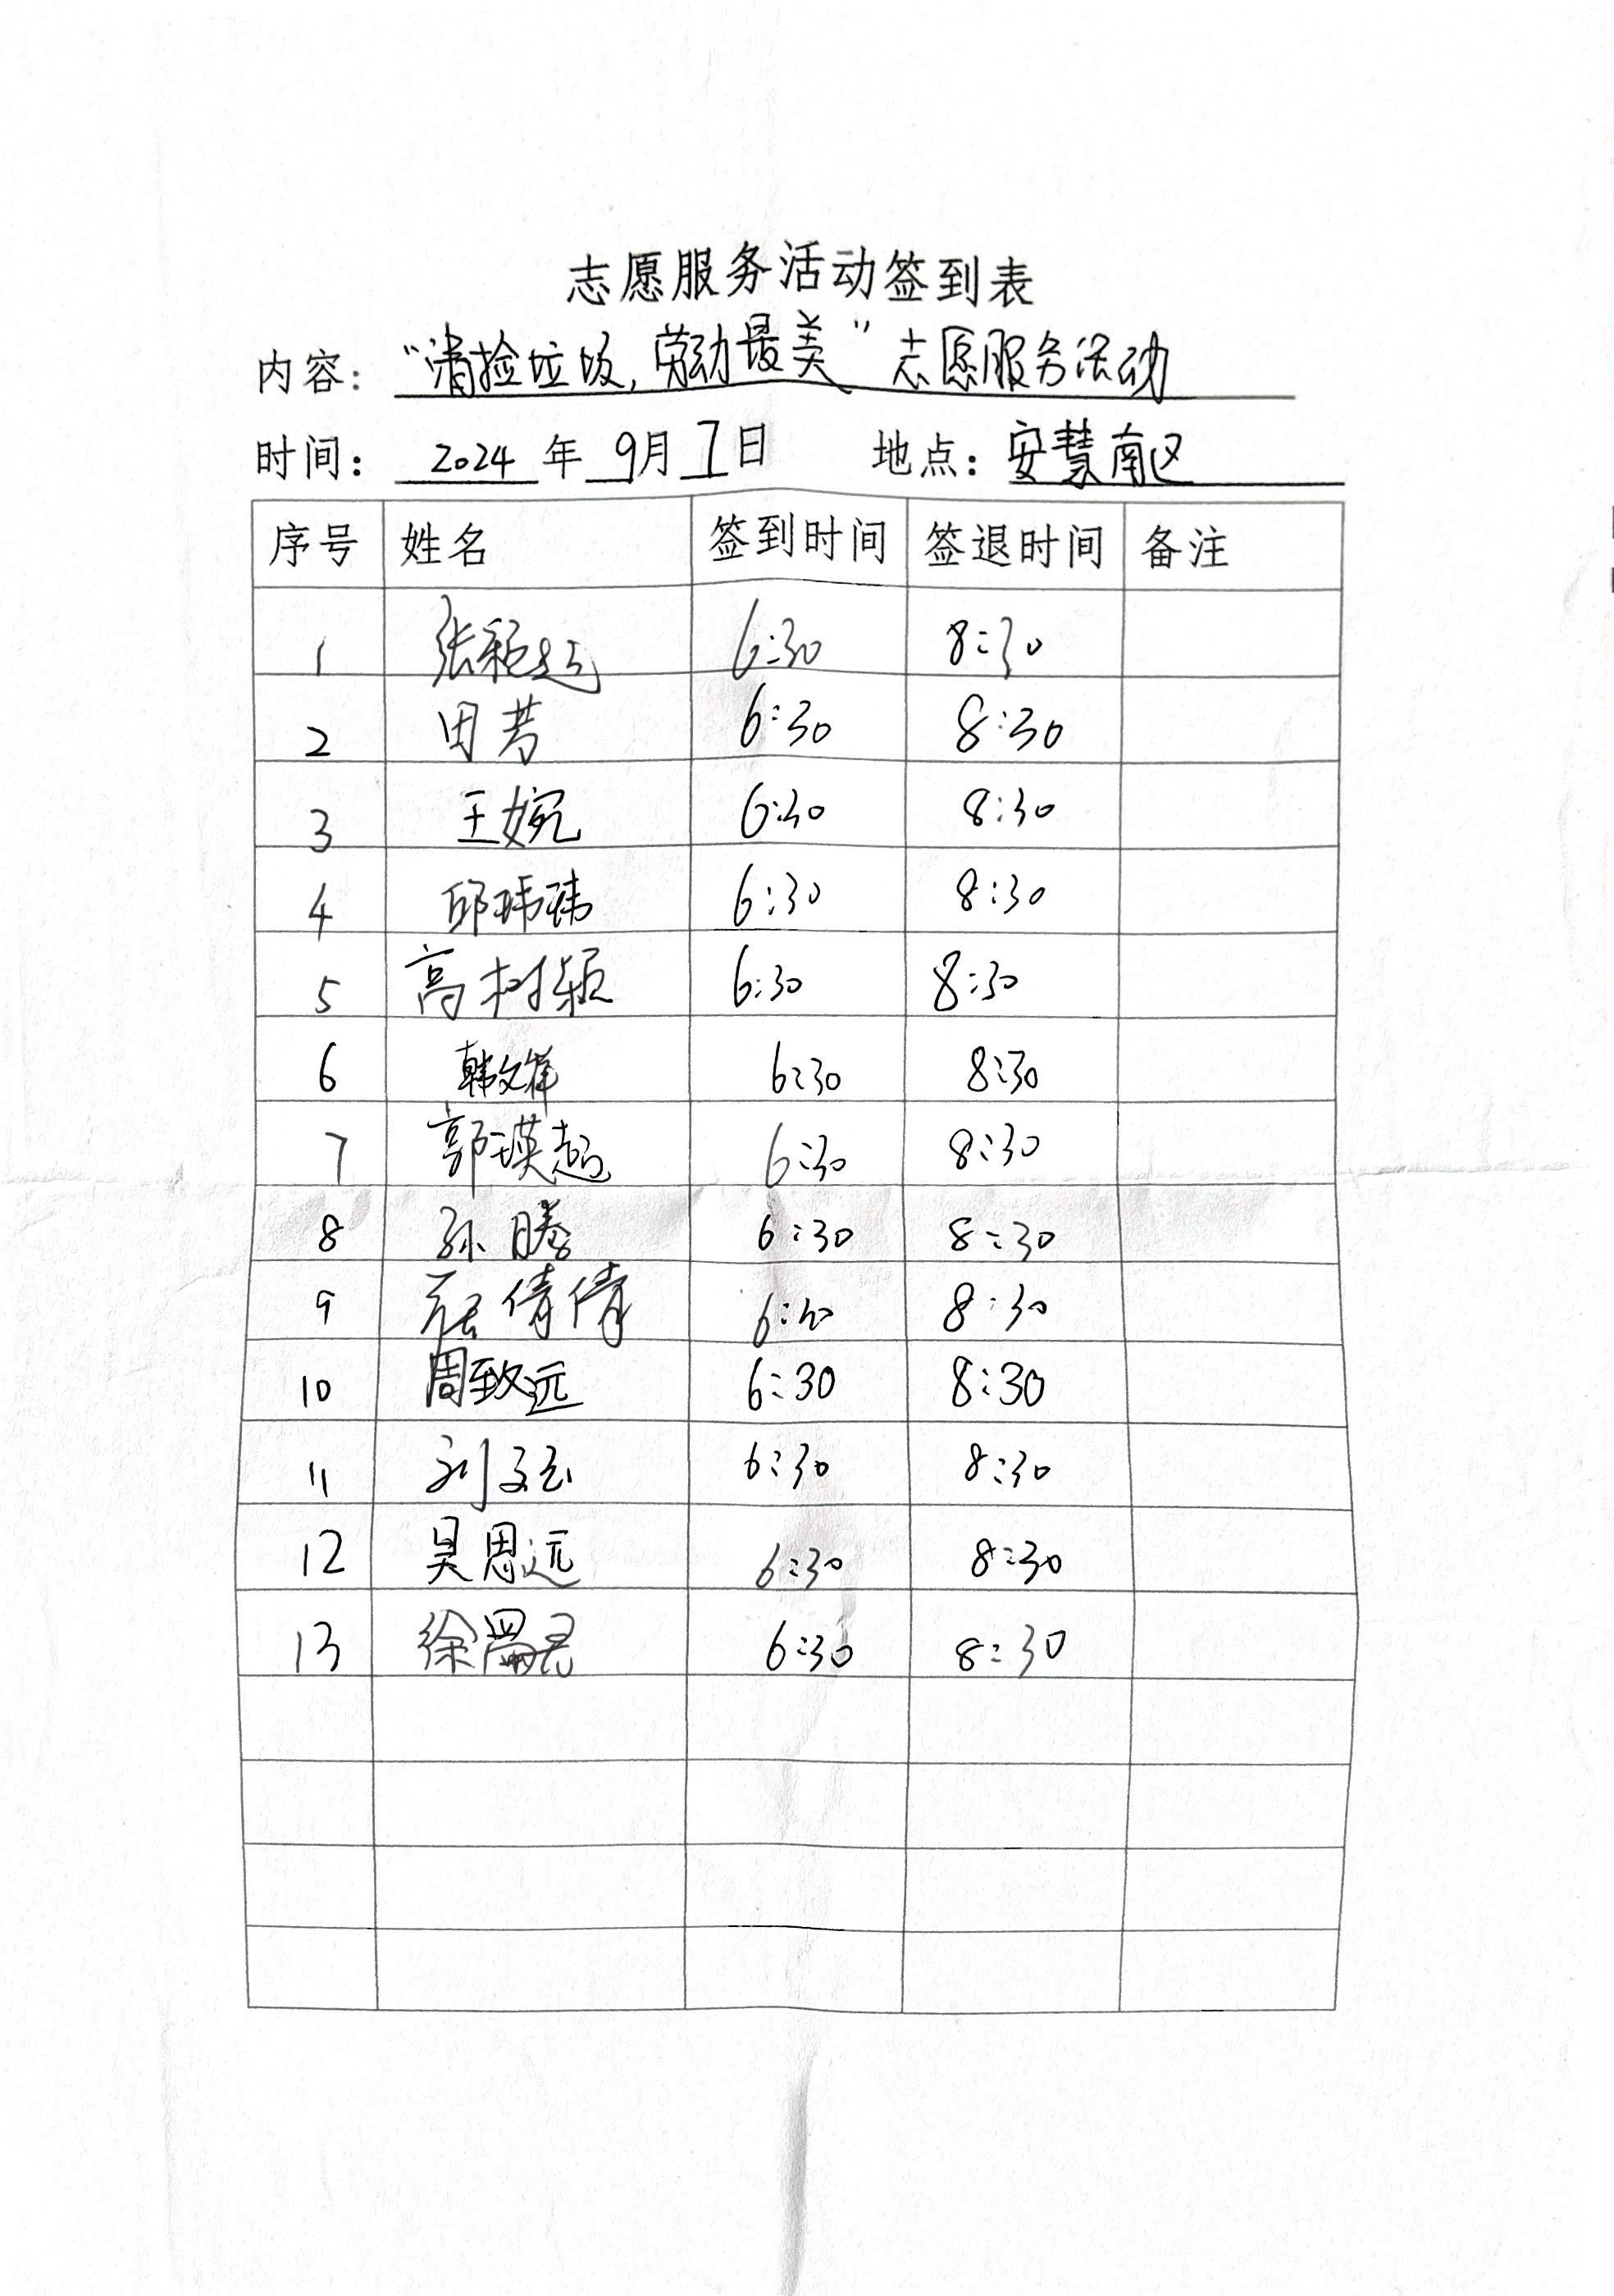 志愿服务活动签到表
内容：“清捡垃圾，劳动最美”志愿服务活动
时间：2024年9月7日 地点：安慧南区
序号 姓名 签到时间 签退时间 备注
1 张颖超 6:30 8:30
2 田芳 6:30 8:30
3 王婉 6:30 8:30
4 邱玮玮 6:30 8:30
5 高树颖 6:30 8:30
6 韩文 6:30 8:30
7 郭瑛超 6:30 8:30
8 孙腾 6:30 8:30
9 倩倩 6:30 8:30
10 周致远 6:30 8:30
11 刘 6:30 8:30
12 吴思远 6:30 8:30
13 徐 6:30 8:30